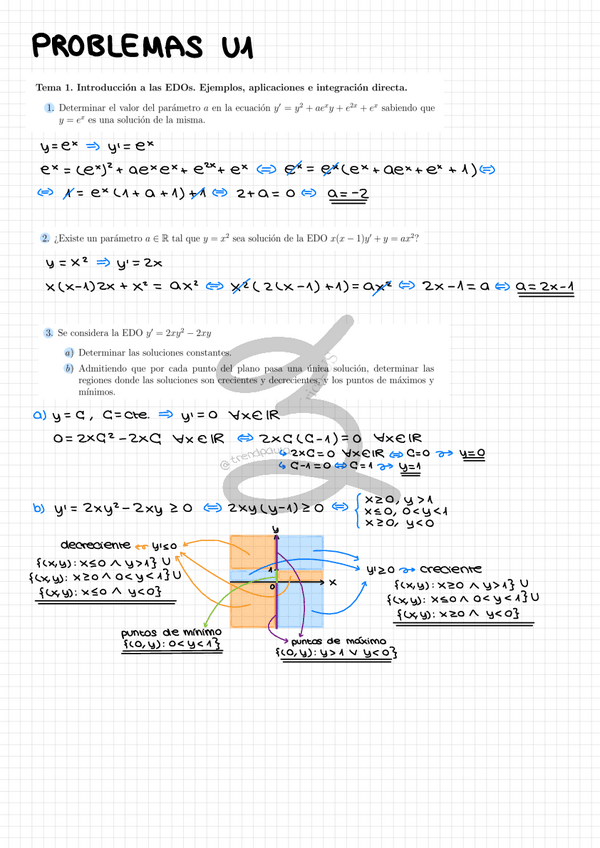 PROBLEMAS U1
Tema 1. Introducción a las EDOs. Ejemplos, aplicaciones e integración directa.
1. Determinar el valor del parámetro a en la ecuación y′ = y² + aeˣy + e²ˣ + eˣ sabiendo que
y = eˣ es una solución de la misma.
y = eˣ ⇒ y' = eˣ
eˣ = (eˣ)² + aeˣeˣ + e²ˣ + eˣ ⇔ eˣ = eˣ(eˣ + aeˣ + eˣ + 1) ⇔
⇔ 1 = eˣ(1 + a + 1) + 1 ⇔ 2 + a = 0 ⇔ a = -2
2. ¿Existe un parámetro a ∈ ℝ tal que y = x² sea solución de la EDO x(x − 1)y′ + y = ax²?
y = x² ⇒ y' = 2x
x(x-1)2x + x² = ax² ⇔ x²(2(x-1)+1) = ax² ⇔ 2x-1 = a ⇔ a = 2x-1
3. Se considera la EDO y′ = 2xy² − 2xy
a) Determinar las soluciones constantes.
b) Admitiendo que por cada punto del plano pasa una única solución, determinar las
regiones donde las soluciones son crecientes y decrecientes, y los puntos de máximos y
mínimos.
@trendpaula
a) y = C, C = cte. ⇒ y' = 0 ∀x∈ℝ
0 = 2xC² - 2xC ∀x∈ℝ ⇔ 2xC(C-1) = 0 ∀x∈ℝ
↳ 2xC = 0 ∀x∈ℝ ⇔ C = 0 ⤳ y=0
↳ C-1 = 0 ⇔ C = 1 ⤳ y=1
b) y' = 2xy² - 2xy ≥ 0 ⇔ 2xy(y-1) ≥ 0 ⇔ { x≥0, y>1
x≤0, 0<y<1
x≥0, y<0
y
decreciente y'≤0
{(x,y): x≤0 ∧ y>1} ∪
{(x,y): x≥0 ∧ 0<y<1} ∪
{(x,y): x≤0 ∧ y<0}
1
0
x
y'≥0 ⤳ creciente
{(x,y): x≥0 ∧ y>1} ∪
{(x,y): x≤0 ∧ 0<y<1} ∪
{(x,y): x≥0 ∧ y<0}
puntos de mínimo
{(0,y): 0<y<1}
puntos de máximo
{(0,y): y>1 ∨ y<0}